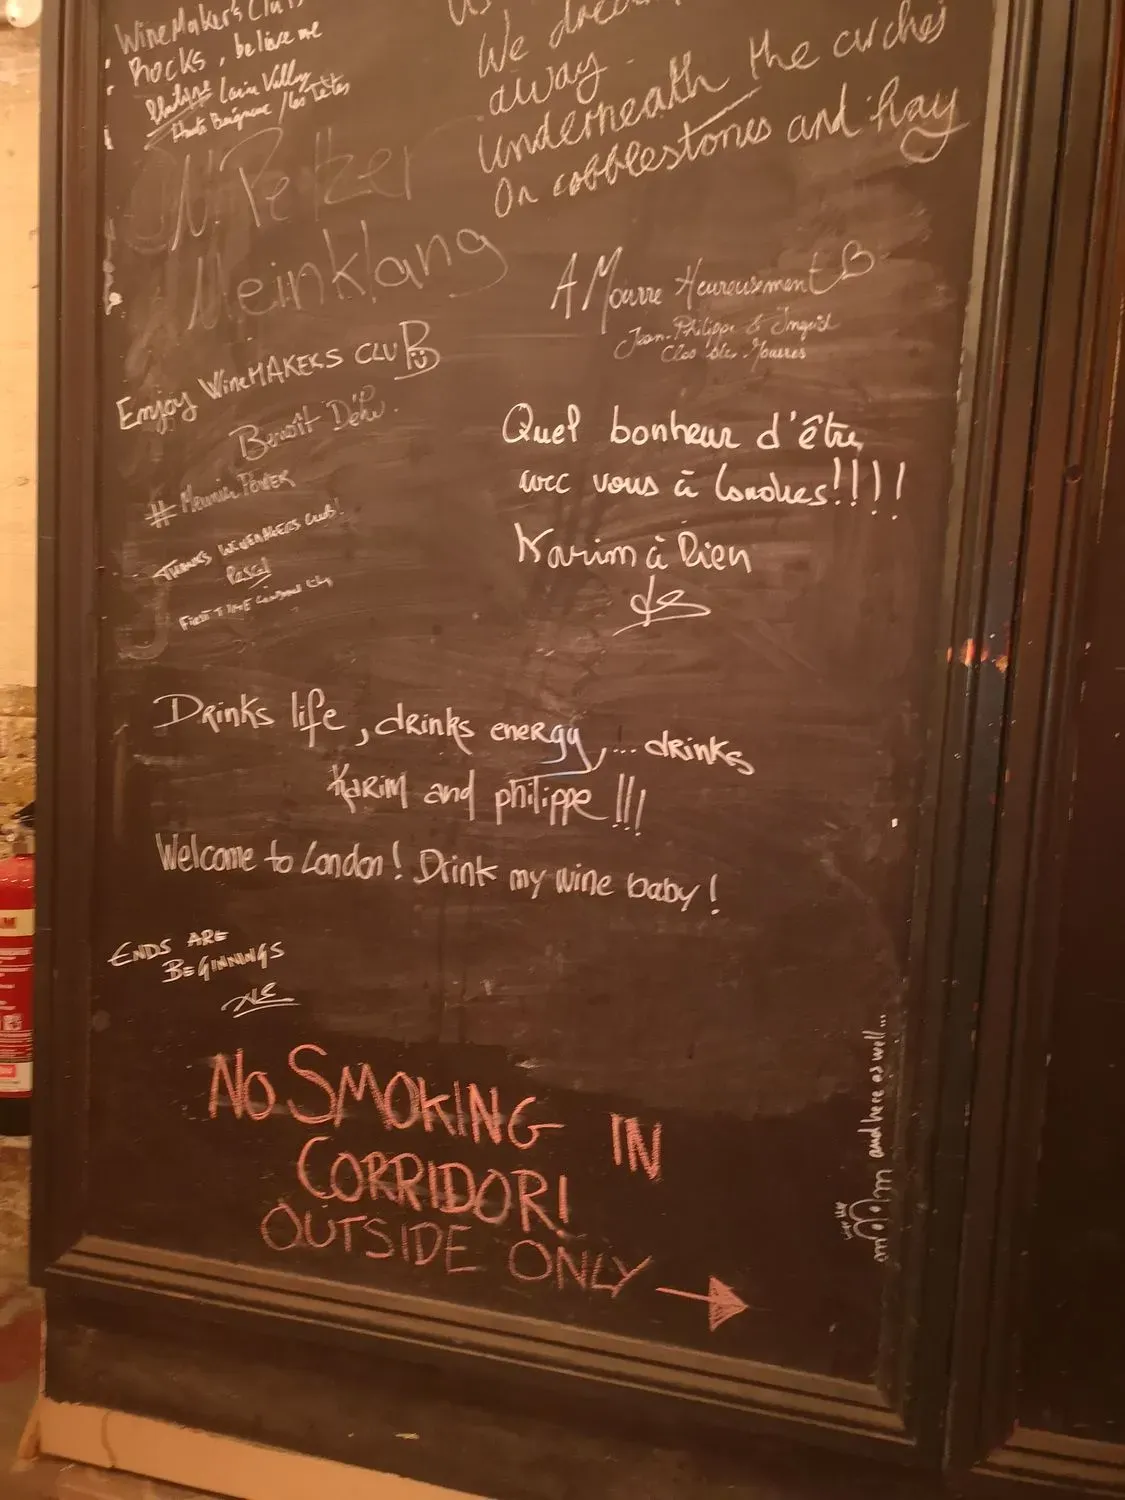 WineMaker's Club
Rocks, believe me
Philippe
Haute Baigneux / les Têtes
N. Petzer
Meinklang
We
away.
underneath the arches
On cobblestones and hay
A Mourre Heureusement
Jean-Philippe & Ingrid
Clos des Mourres
Enjoy WineMAKERS CLUB
Benoît Déhu.
# Meunier POWER
THANKS WINEMAKERS CLUB!
Pascal
FIRST TIME
Quel bonheur d'être
avec vous à Londres!!!!
Karim à Rien
Drinks life, drinks energy, ... drinks
Karim and philippe !!!
Welcome to London! Drink my wine baby!
ENDS ARE
BEGINNINGS
No SMOKING IN
CORRIDOR!
OUTSIDE ONLY
and here as well...